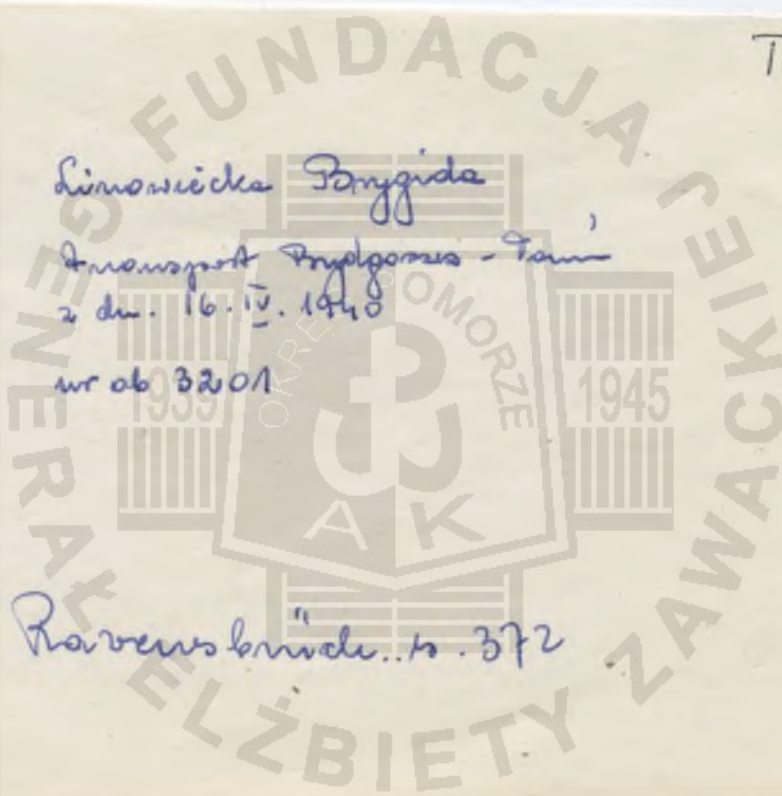 T
Linowiecka Brygida
transport Bydgoszcz - Toruń
z dn. 16.IV.1940
nr ob 3201
Ravensbrück.. s. 372
FUNDACJA GENERAŁ ELŻBIETY ZAWACKIEJ
OKRĘG POMORZE
1939
1945
AK